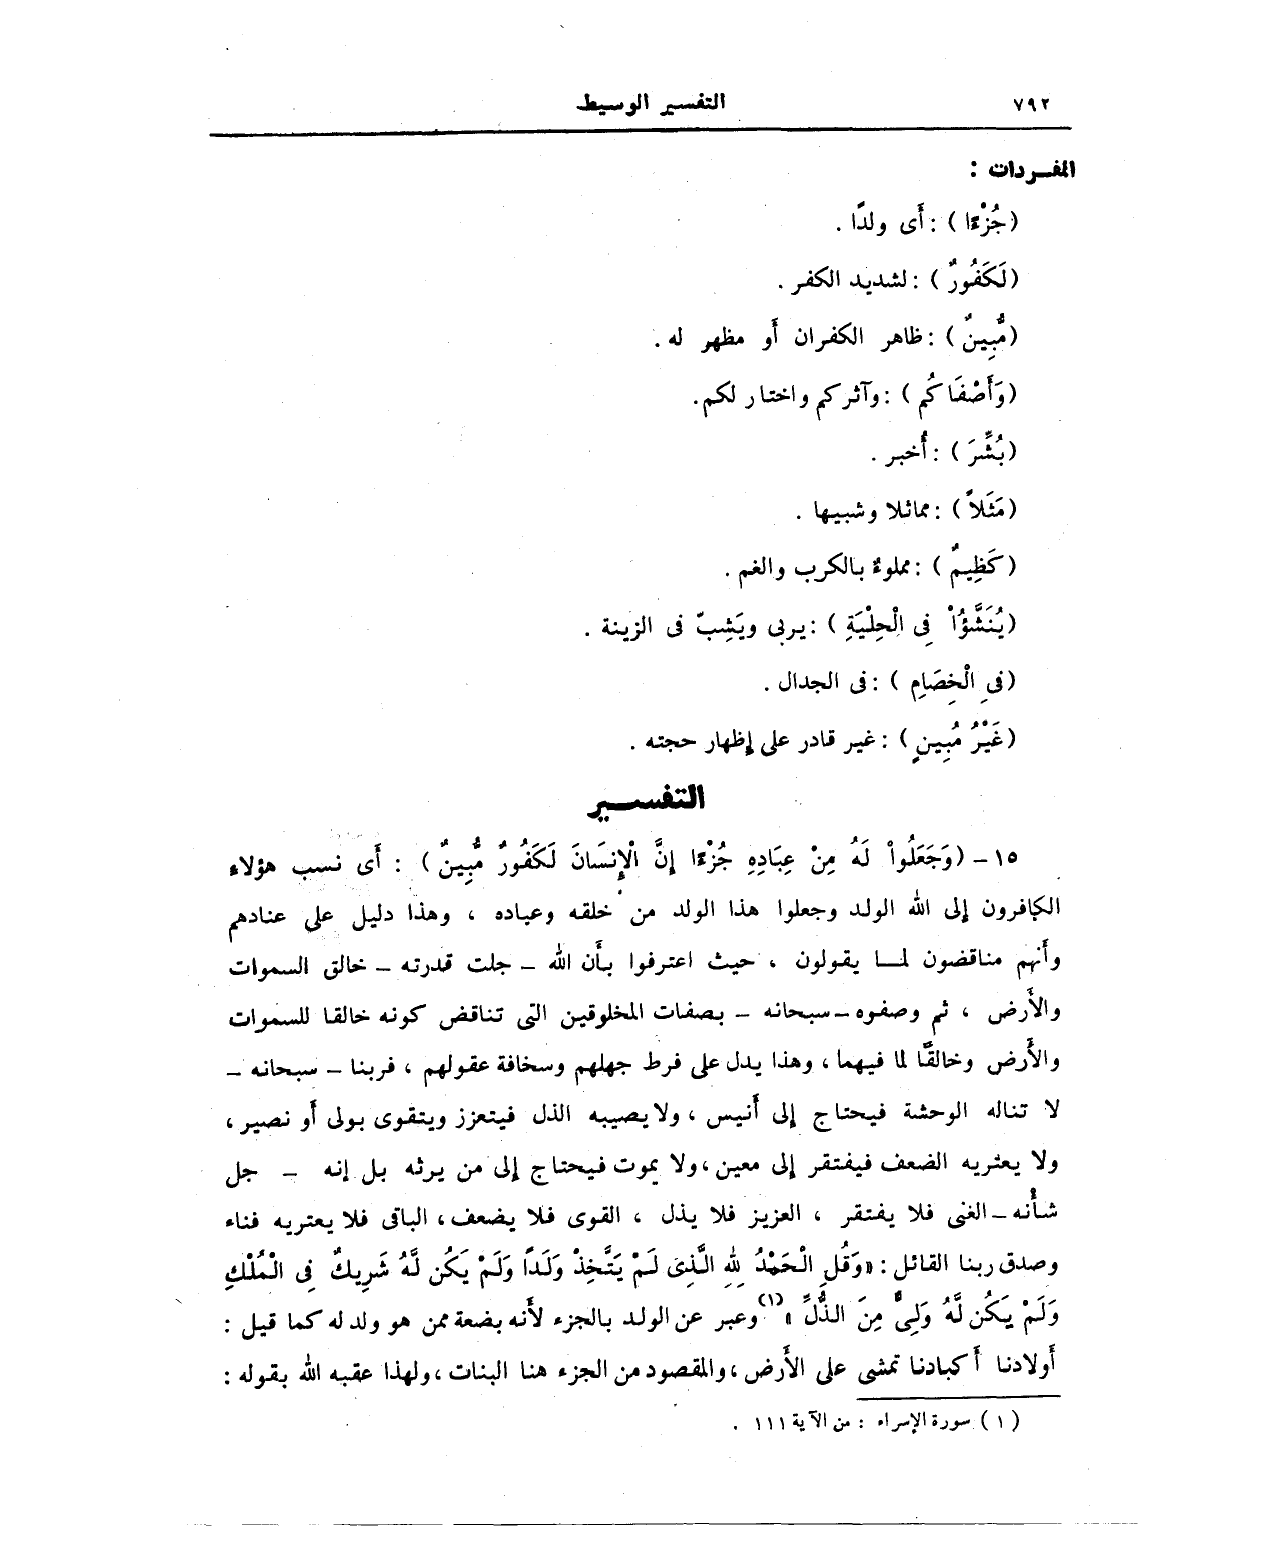 ٧٩٢
التفسير الوسيط
المفردات :
(جُزْءًا ) : أَى ولدًا .
(لَكَفُورٌ ) : لشديد الكفر .
(مُّبِينٌ ) : ظاهر الكفران أَو مظهر له .
(وَأَصْفَاكُم ) : وآثركم واختار لكم.
(بُشِّرَ ) : أُخبر .
(مَثَلاً ) : مماثلا وشبيها .
(كَظِيمٌ ) : مملوءٌ بالكرب والغم .
(يُنَشَّؤُاْ فِى الْحِلْيَةِ ) : يربى ويَشِبّ فى الزينة .
(فِى الْخِصَامِ ) : فى الجدال .
(غَيْرُ مُبِينٍ ) : غير قادر على إظهار حجته .
التفسير
١٥ - (وَجَعَلُواْ لَهُ مِنْ عِبَادِهِ جُزْءًا إِنَّ الْإِنسَانَ لَكَفُورٌ مُّبِينٌ ) : أَى نسب هؤلاء
الكافرون إلى الله الولد وجعلوا هذا الولد من خلقه وعباده ، وهذا دليل على عنادهم
وأَنهم مناقضون لمـا يقولون ، حيث اعترفوا بأَن الله - جلت قدرته - خالق السموات
والأَرض ، ثم وصفوه - سبحانه - بصفات المخلوقين التى تناقض كونه خالقا للسموات
والأَرض وخالقًا لما فيهما ، وهذا يدل على فرط جهلهم وسخافة عقولهم ، فربنا - سبحانه -
لا تناله الوحشة فيحتاج إلى أَنيس ، ولا يصيبه الذل فيتعزز ويتقوى بولى أَو نصير ،
ولا يعتريه الضعف فيفتقر إلى معين ، ولا يموت فيحتاج إلى من يرثه بل إنه - جل
شأْنه - الغنى فلا يفتقر ، العزيز فلا يذل ، القوى فلا يضعف ، الباقى فلا يعتريه فناء
وصدق ربنا القائل : «وَقُلِ الْحَمْدُ لِلهِ الَّذِى لَمْ يَتَّخِذْ وَلَدًا وَلَمْ يَكُن لَّهُ شَرِيكٌ فِى الْمُلْكِ
وَلَمْ يَكُن لَّهُ وَلِىٌّ مِنَ الذُّلِّ »(١) وعبر عن الولد بالجزء لأَنه بضعة ممن هو ولد له كما قيل :
أَولادنا أَكبادنا تمشى على الأَرض ، والمقصود من الجزء هنا البنات ، ولهذا عقبه الله بقوله :
(١) سورة الإسراء : من الآية ١١١ .